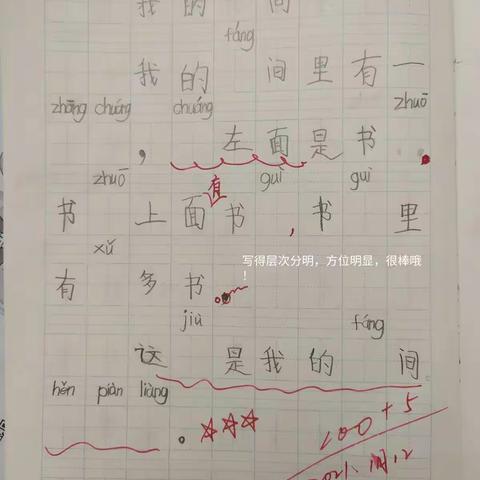 我的 间
fáng
我的 间里有一
zhāng chuáng chuáng zhuō
， 左面是书 。
zhuō guì guì
书 上面书 ，书 里
xǔ
有 多书。
写得层次分明，方位明显，很棒哦
！
jiù fáng
这 是我的 间
hěn piàn liàng
。
100+5